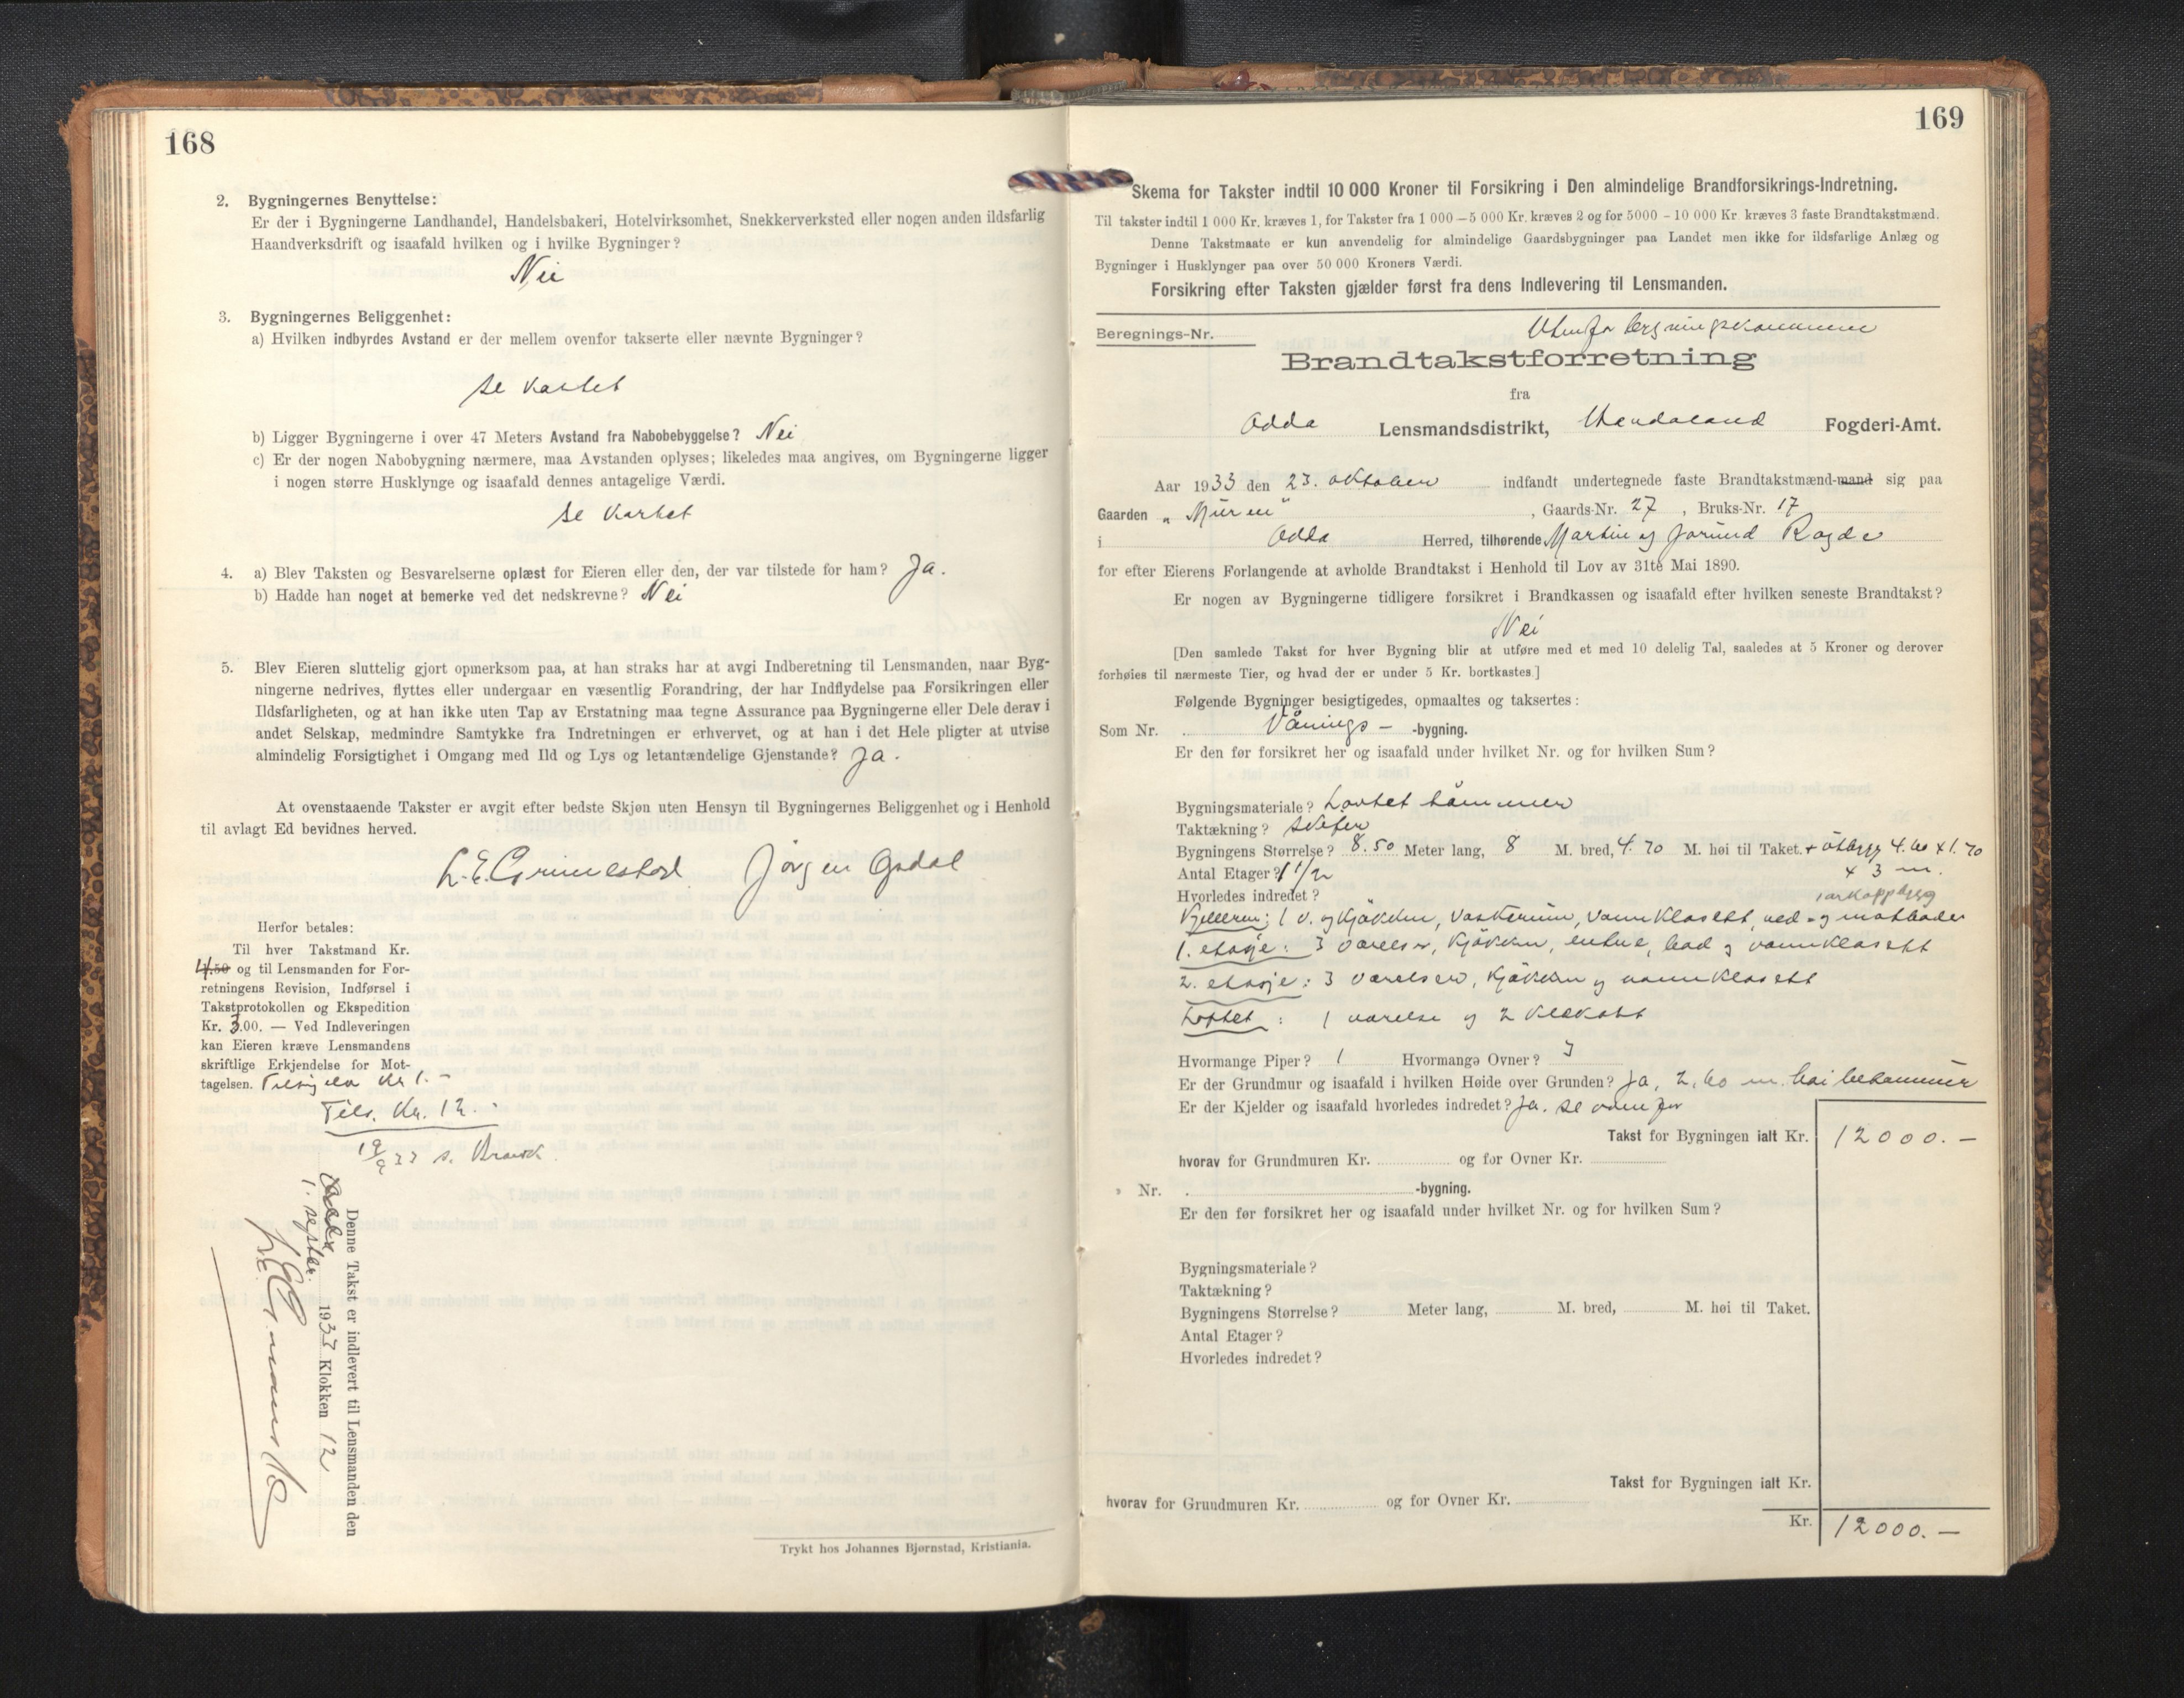 168
2. Bygningernes Benyttelse:
Er der i Bygningerne Landhandel, Handelsbakeri, Hotelvirksomhet, Snekkerverksted eller nogen anden ildsfarlig
Haandverksdrift og isaafald hvilken og i hvilke Bygninger?
Nei
3. Bygningernes Beliggenhet:
a) Hvilken indbyrdes Avstand er der mellem ovenfor takserte eller nævnte Bygninger?
se kartet
b) Ligger Bygningerne i over 47 Meters Avstand fra Nabobebyggelse? Nei
c) Er der nogen Nabobygning nærmere, maa Avstanden oplyses; likeledes maa angives, om Bygningerne ligger
i nogen større Husklynge og isaafald dennes antagelige Værdi.
se kartet
4. a) Blev Taksten og Besvarelserne oplæst for Eieren eller den, der var tilstede for ham? Ja.
b) Hadde han noget at bemerke ved det nedskrevne? Nei
5. Blev Eieren sluttelig gjort opmerksom paa, at han straks har at avgi Indberetning til Lensmanden, naar Byg-
ningerne nedrives, flyttes eller undergaar en væsentlig Forandring, der har Indflydelse paa Forsikringen eller
Ildsfarligheten, og at han ikke uten Tap av Erstatning maa tegne Assurance paa Bygningerne eller Dele derav i
andet Selskap, medmindre Samtykke fra Indretningen er erhvervet, og at han i det Hele pligter at utvise
almindelig Forsigtighet i Omgang med Ild og Lys og letantændelige Gjenstande? Ja.
At ovenstaaende Takster er avgit efter bedste Skjøn uten Hensyn til Bygningernes Beliggenhet og i Henhold
til avlagt Ed bevidnes herved.
L. E. Grimestad Jørgen Opdal
Herfor betales:
Til hver Takstmand Kr.
4.50 og til Lensmanden for For-
retningens Revision, Indførsel i
Takstprotokollen og Ekspedition
Kr. 3.00. — Ved Indleveringen
kan Eieren kræve Lensmandens
skriftlige Erkjendelse for Mot-
tagelsen. Kr 1.-
Tils. Kr. 12.-
Denne Takst er indlevert til Lensmanden den
1. septbr. 1937 Klokken 12
Trykt hos Johannes Bjørnstad, Kristiania.
169
Skema for Takster indtil 10 000 Kroner til Forsikring i Den almindelige Brandforsikrings-Indretning.
Til takster indtil 1 000 Kr. kræves 1, for Takster fra 1 000 — 5 000 Kr. kræves 2 og for 5000 - 10 000 Kr kræves 3 faste Brandtakstmænd.
Denne Takstmaate er kun anvendelig for almindelige Gaardsbygninger paa Landet men ikke for ildsfarlige Anlæg og
Bygninger i Husklynger paa over 50 000 Kroners Værdi.
Forsikring efter Taksten gjælder først fra dens Indlevering til Lensmanden.
Utenfor bygningskommunen
Beregnings-Nr.
Brandtakstforretning
fra
Odda Lensmandsdistrikt, Hordaland Fogderi-Amt.
Aar 1933 den 23. oktober indfandt undertegnede faste Brandtakstmænd-mand sig paa
Gaarden "Muren" , Gaards-Nr. 27 , Bruks-Nr. 17
i Odda Herred, tilhørende Martin og Jorund Ragde
for efter Eierens Forlangende at avholde Brandtakst i Henhold til Lov av 31te Mai 1890.
Er nogen av Bygningerne tidligere forsikret i Brandkassen og isaafald efter hvilken seneste Brandtakst?
Nei
[Den samlede Takst for hver Bygning blir at utføre med et med 10 delelig Tal, saaledes at 5 Kroner og derover
forhøies til nærmeste Tier, og hvad der er under 5 Kr. bortkastes]
Følgende Bygninger besigtigedes, opmaaltes og taksertes:
Som Nr. Vånings- -bygning.
Er den før forsikret her og isaafald under hvilket Nr. og for hvilken Sum?
Bygningsmateriale? Loftet tømmer
Taktækning? skifer
Bygningens Størrelse? 8.50 Meter lang, 8 M. bred, 4.70 M. høi til Taket. + utbygg 4.60 x 1.70
Antal Etager? 1 1/2 x 3 m.
Hvorledes indredet? arkoppbygg
Kjelleren: 1 v. og kjøkken, vaskerum, vannklosett, ved- og matboder
1. etasje: 3 værelser, kjøkken, entre, bad og vannklosett
2. etasje: 3 værelser, kjøkken og vannklosett
Loftet: 1 værelse og 2 klekott
Hvormange Piper? 1 Hvormange Ovner? 3
Er der Grundmur og isaafald i hvilken Høide over Grunden? Ja, 2,60 m. høi betongmur
Er der Kjelder og isaafald hvorledes indredet? Ja. se ovenfor
Takst for Bygningen ialt Kr. 12000.-
hvorav for Grundmuren Kr. og for Ovner Kr.
Nr. -bygning.
Er den før forsikret her og isaafald under hvilket Nr. og for hvilken Sum?
Bygningsmateriale?
Taktækning?
Bygningens Størrelse? Meter lang, M. bred, M. høi til Taket.
Antal Etager?
Hvorledes indredet?
Takst for Bygningen ialt Kr.
hvorav for Grundmuren Kr. og for Ovner Kr.
Kr. 12000.-